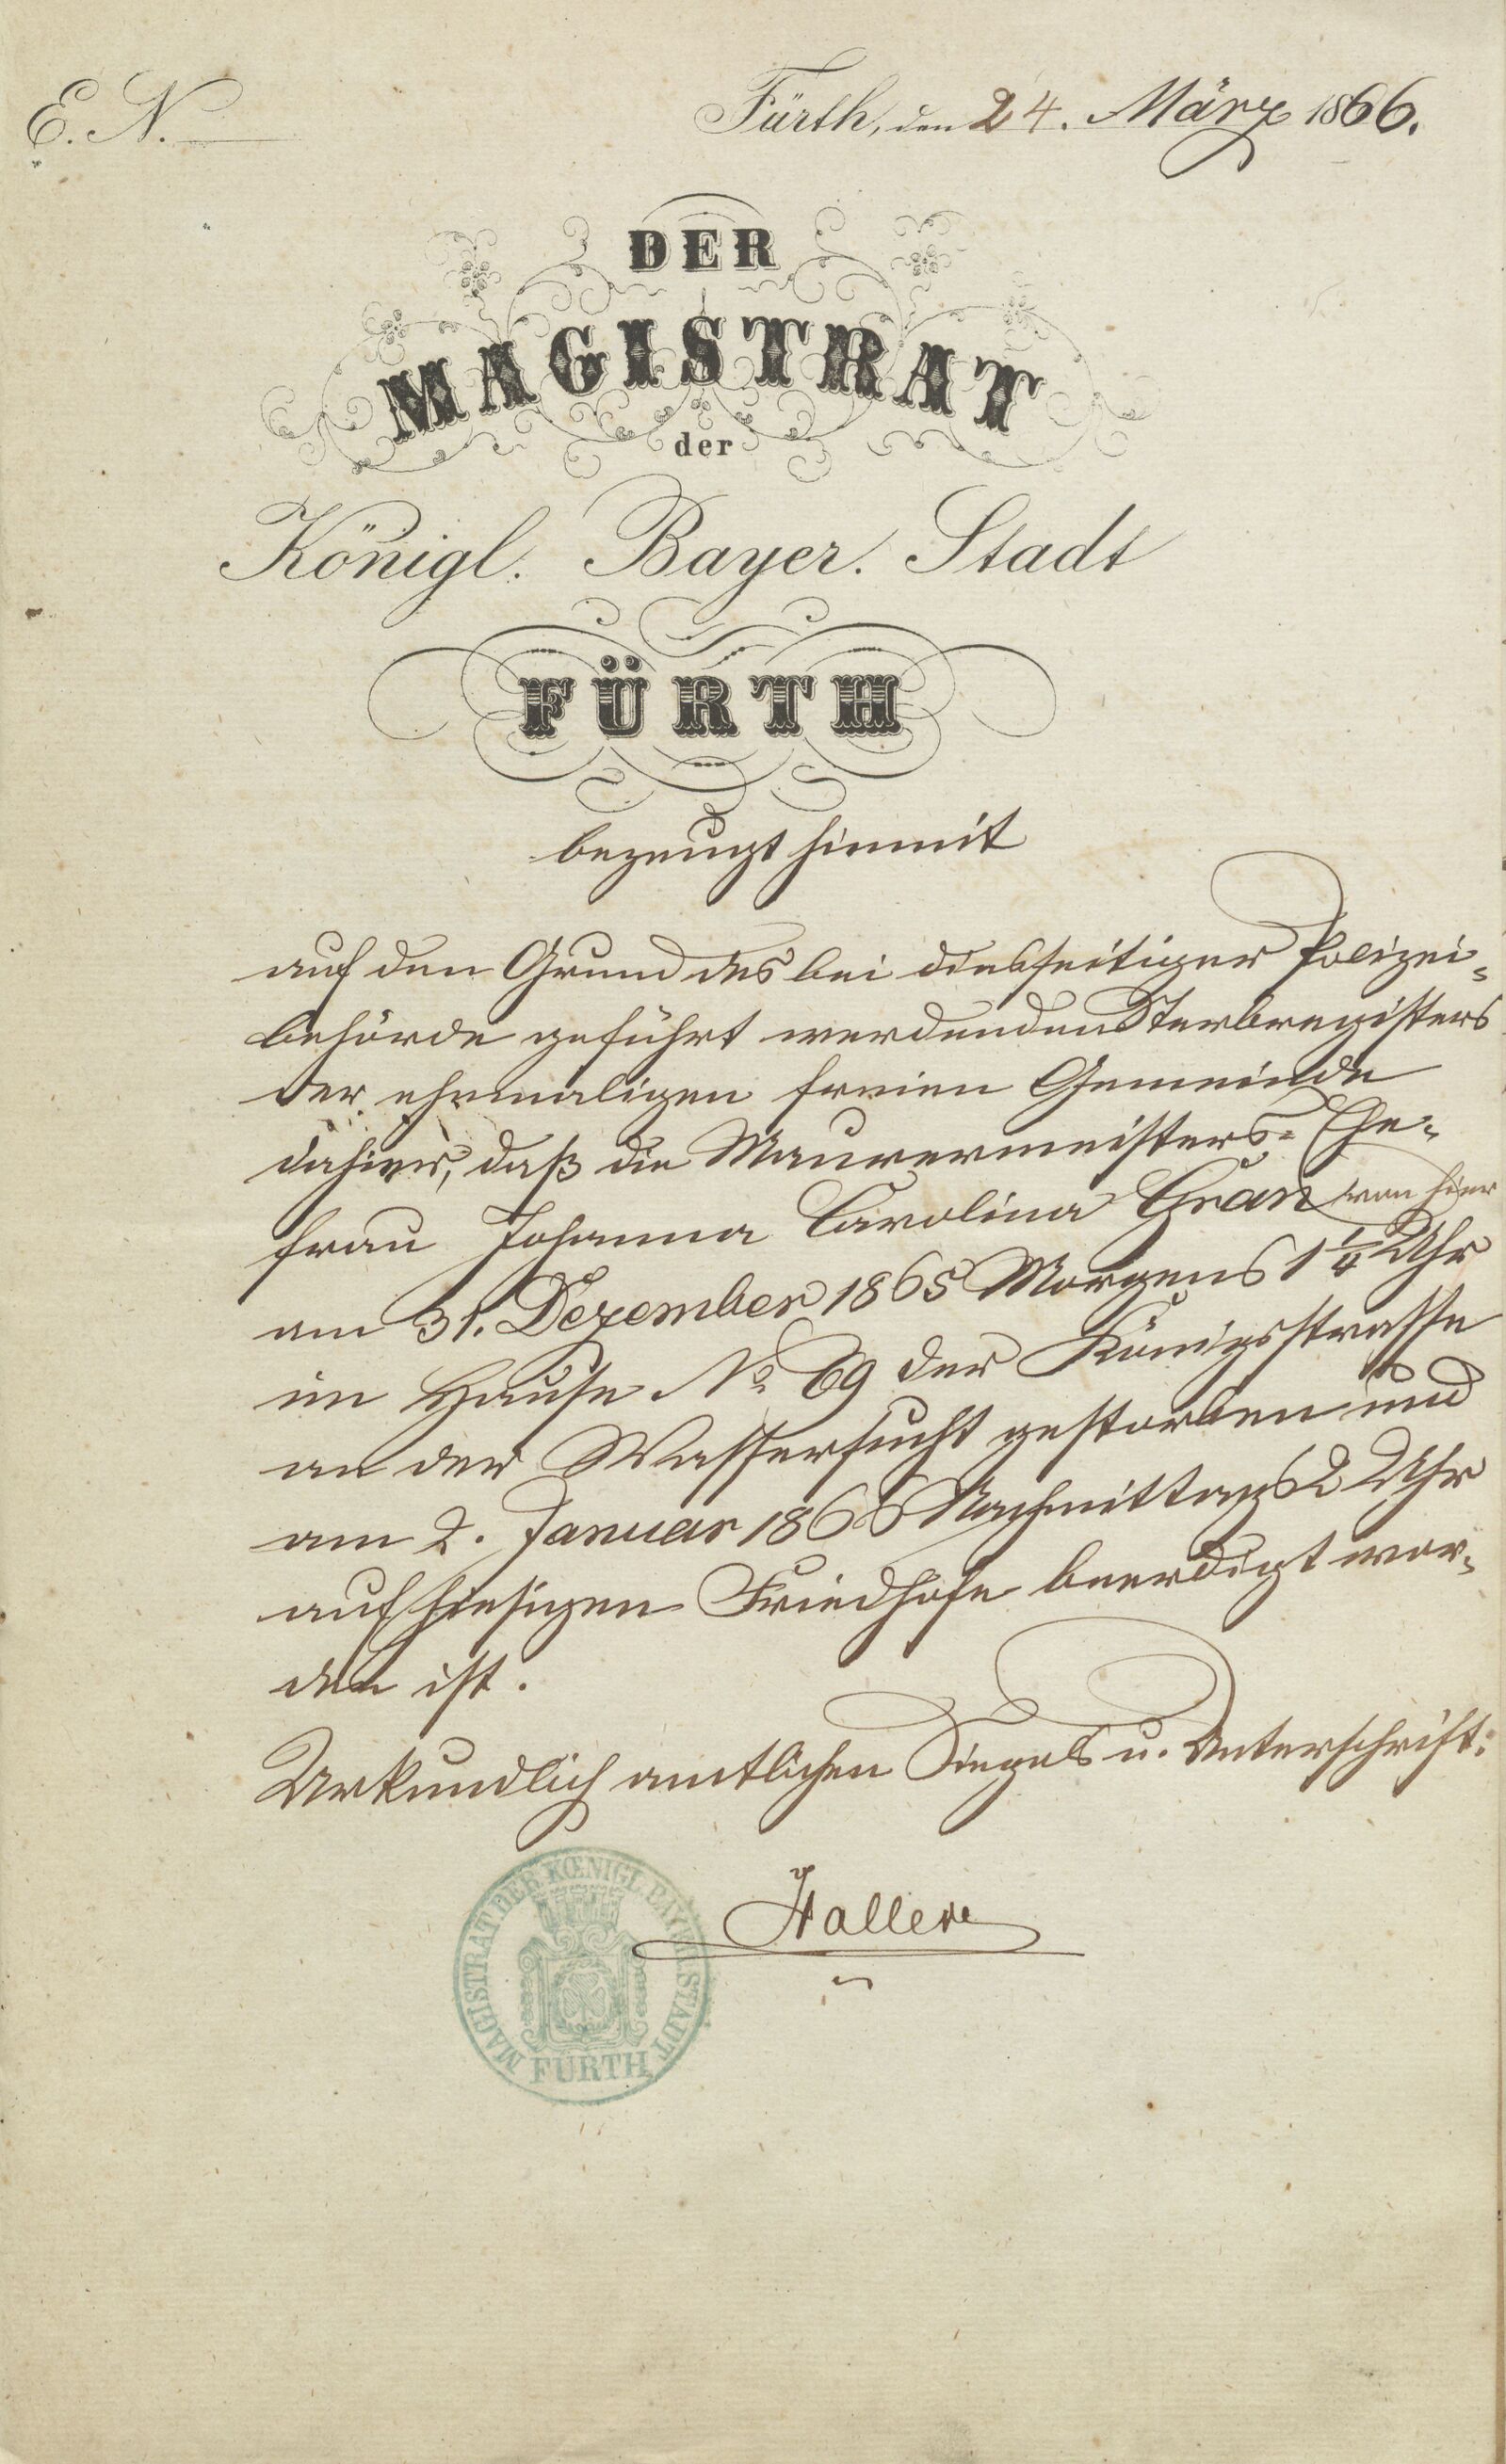 E. N.
Fürth, den 24. März 1866.
DER
MAGISTRAT
der
Königl. Bayer. Stadt
FÜRTH
bezeugt hiemit
auf den Grund des bei diesseitiger Polizei-
behörde geführt werdenden Sterbregisters
der ehemaligen freien Gemeinde
dahier, daß die Maurermeisters-Ehe-
frau Johanna Carolina Gran von hier
am 31. Dezember 1865 Morgens 1 1/4 Uhr
im Hause No. 69 der Königsstrasse
an der Wassersucht gestorben und
am 2. Januar 1866 Nachmittags 2 Uhr
auf hiesigen Friedhofe beerdigt wor-
den ist.
Urkundlich amtlichen Siegels u. Unterschrift:
Haller
MAGISTRAT DER KŒNIGL. BAYER. STADT
FÜRTH